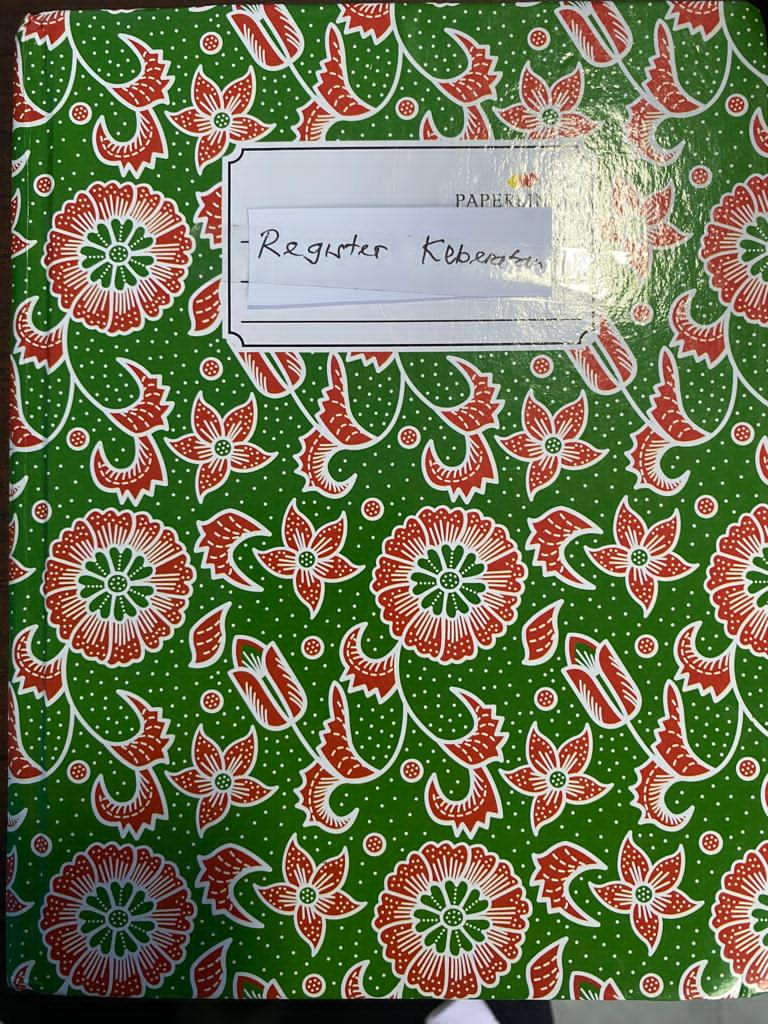 PAPERLINE
Register Keberatan